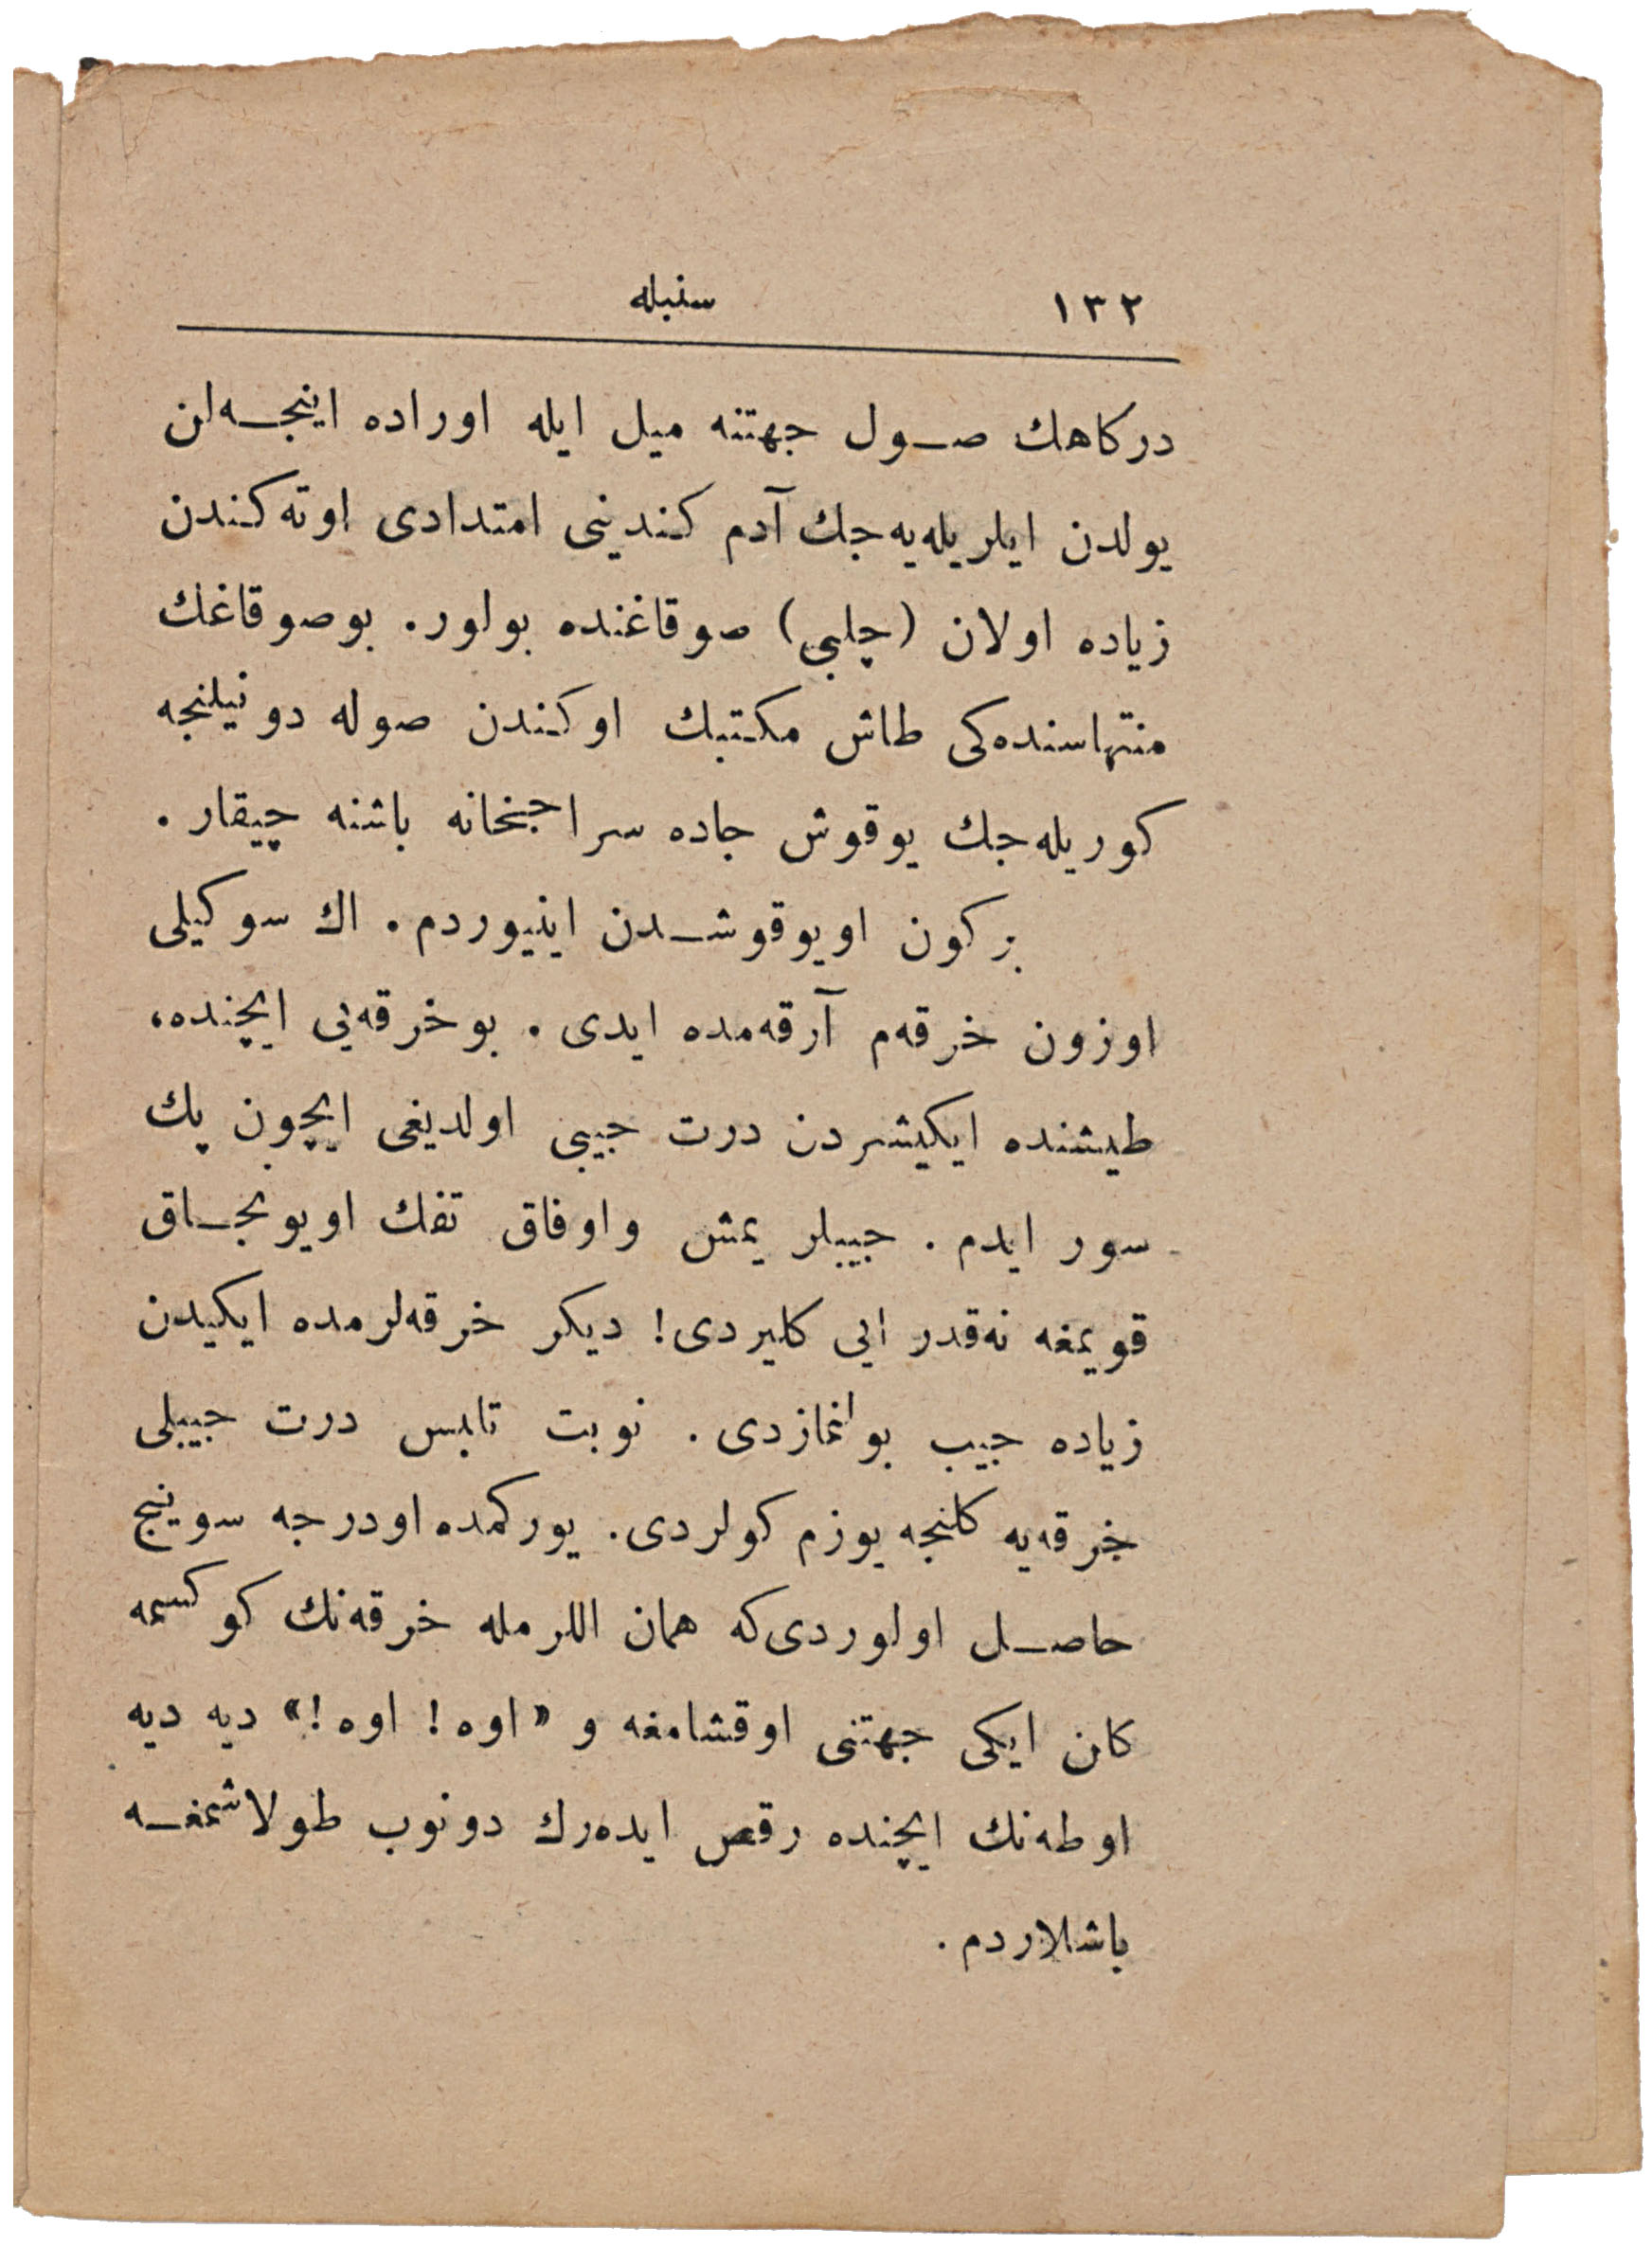 ١٣٢ سنبله
دركاهك صول جهتنه ميل ايله اوراده اينجه‌لن
يولدن ايلريله‌يه‌جك آدم كنديني امتدادى اوته‌كندن
زياده اولان (چلبى) صوقاغنده بولور. بوصوقاغك
منتهاسنده‌كى طاش مكتبك اوكندن صوله دونيلنجه
كوريله‌جك يوقوش جاده سراجخانه باشنه چيقار.
بركون اويوقوشدن اينيوردم. اك سوكيلى
اوزون خرقه‌م آرقه‌مده ايدى. بوخرقه‌يى ايچنده،
طيشنده ايكيشردن درت جيبى اولديغى ايچون پك
سور ايدم. جيبلر يمش واوفاق تفك اويونجاق
قويمغه نه‌قدر ايى كليردى! ديكر خرقه‌لرمده ايكيدن
زياده جيب بولنمازدى. نوبت تلبس درت جيبلى
خرقه‌يه كلنجه يوزم كولردى. يوركمده اودرجه سوينج
حاصل اولوردى‌كه همان اللرمله خرقه‌نك كوكسمه
كلن ايكى جهتنى اوقشامغه و «اوه! اوه!» ديه ديه
اوطه‌نك ايچنده رقص ايده‌رك دونوب طولاشمغه
باشلاردم.